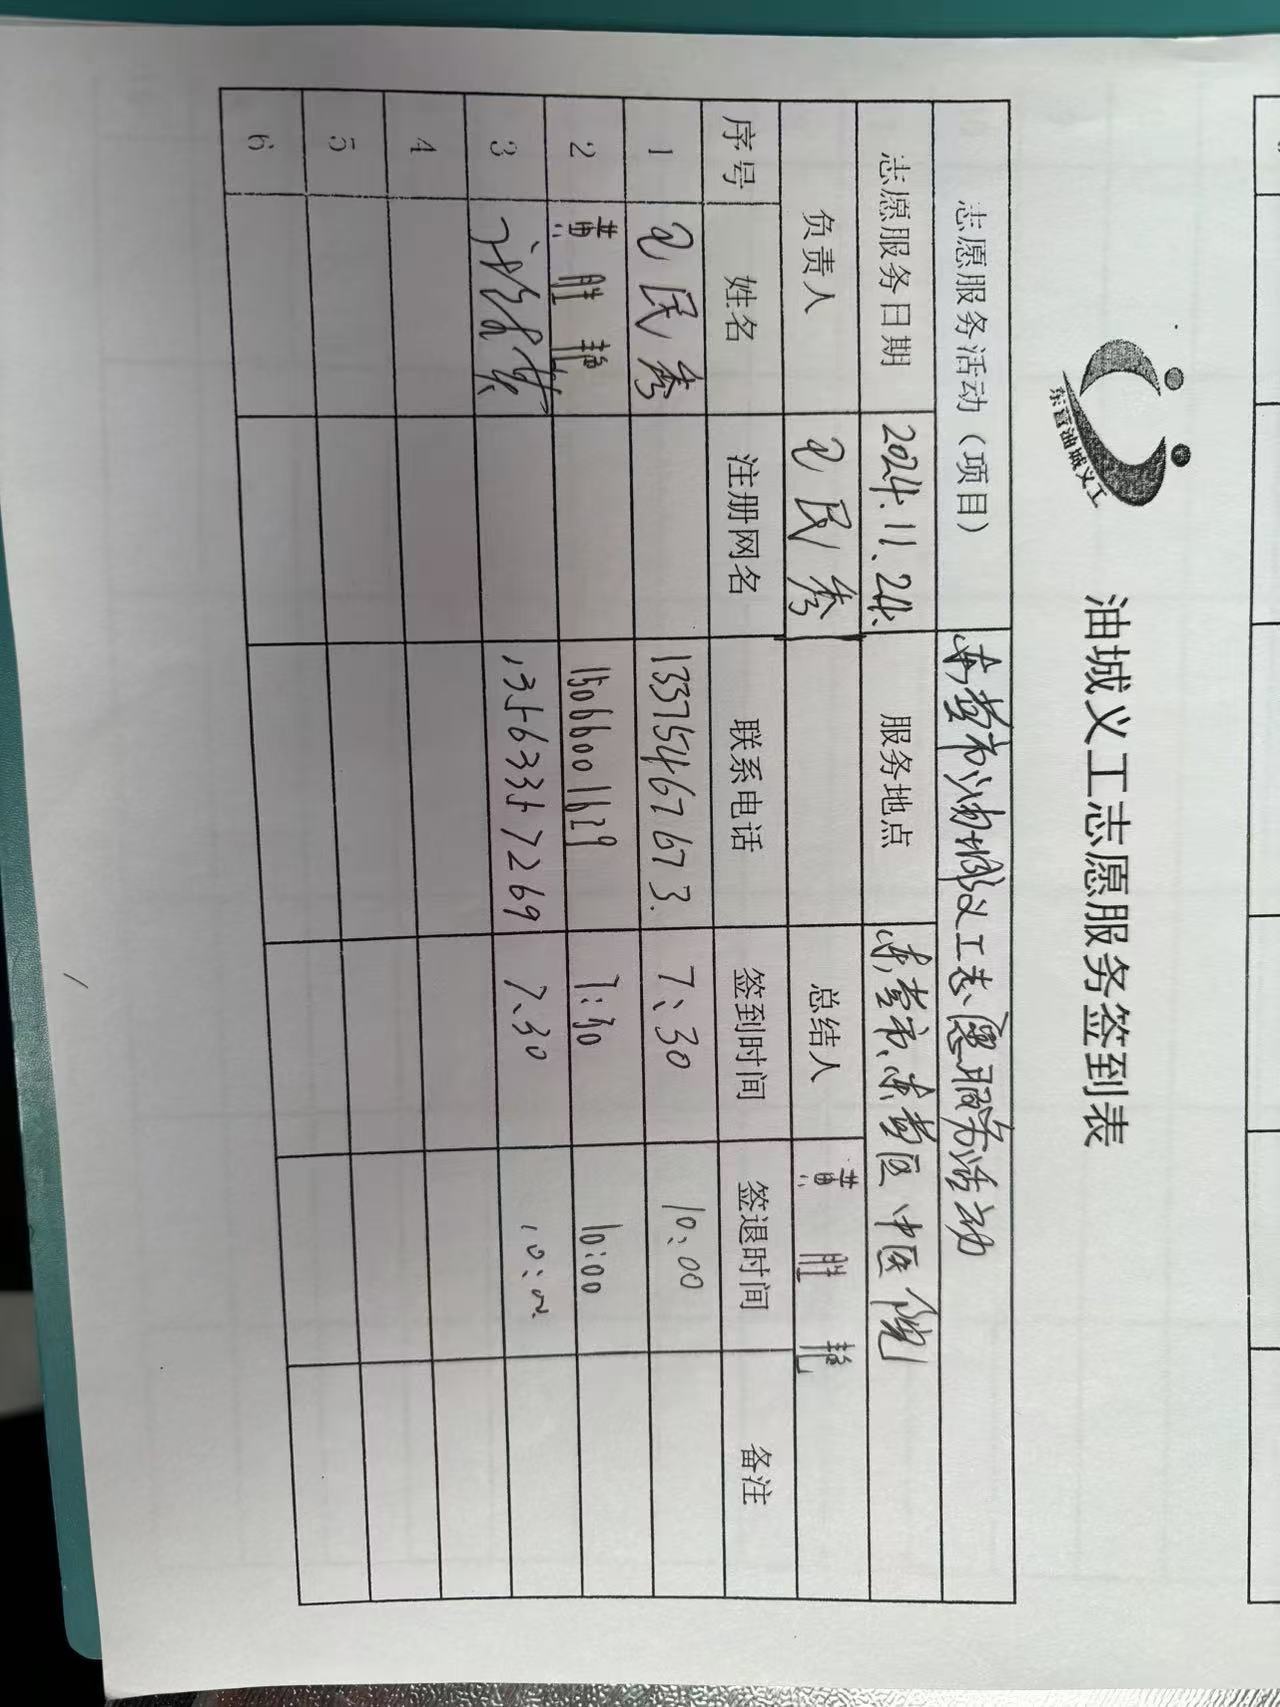 东营油城义工
油城义工志愿服务签到表
志愿服务活动（项目） 东营市油城义工志愿服务活动
志愿服务日期 2024.11.24. 服务地点 东营市、东营区中医院
负责人 民秀 总结人 黄胜艳
序号 姓名 注册网名 联系电话 签到时间 签退时间 备注
1 民秀 13375467673. 7:30 10:00
2 黄胜艳 15066001629 7:30 10:00
3 13563357269 7:30 10:00
4
5
6